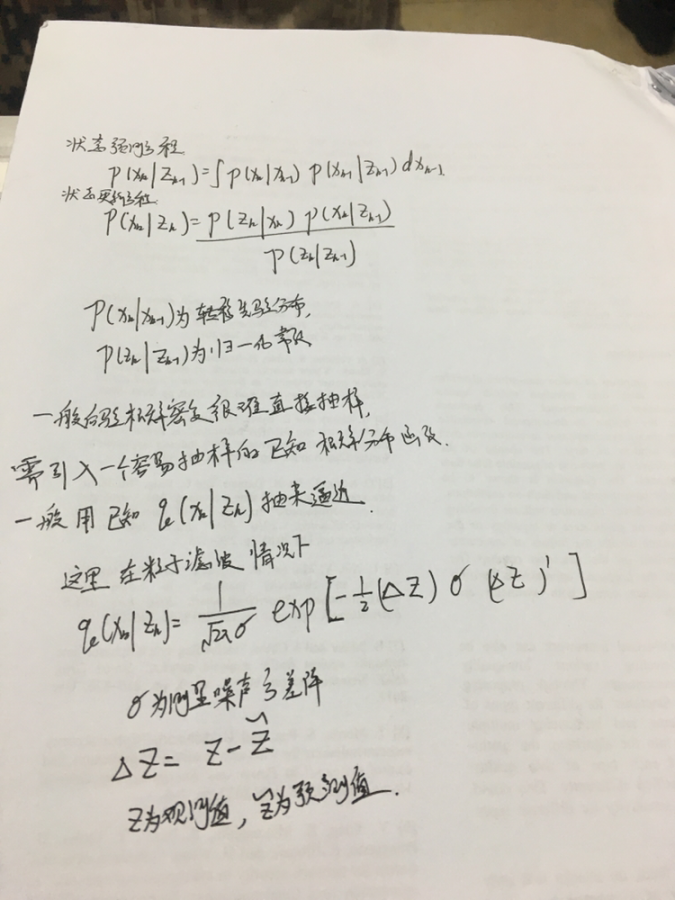 状态预测方程
p(xₙ|zₙ₋₁)=∫p(xₙ|xₙ₋₁) p(xₙ₋₁|zₙ₋₁)dxₙ₋₁
状态更新方程
p(xₙ|zₙ)=p(zₙ|xₙ) p(xₙ|zₙ₋₁)
p(zₙ|zₙ₋₁)
p(xₙ|xₙ₋₁)为转移先验分布,
p(zₙ|zₙ₋₁)为归一化常数
一般后验概率密度很难直接抽样,
需引入一个容易抽样的已知概率分布函数.
一般用已知 q(xₙ|zₙ)抽来逼近.
这里在粒子滤波情况下
q(xₙ|zₙ)= 1/√2π σ exp[-1/2(ΔZ) σ (ΔZ)']
σ为测量噪声方差阵
ΔZ= Z-Ž
Z为观测值, ž为预测值.